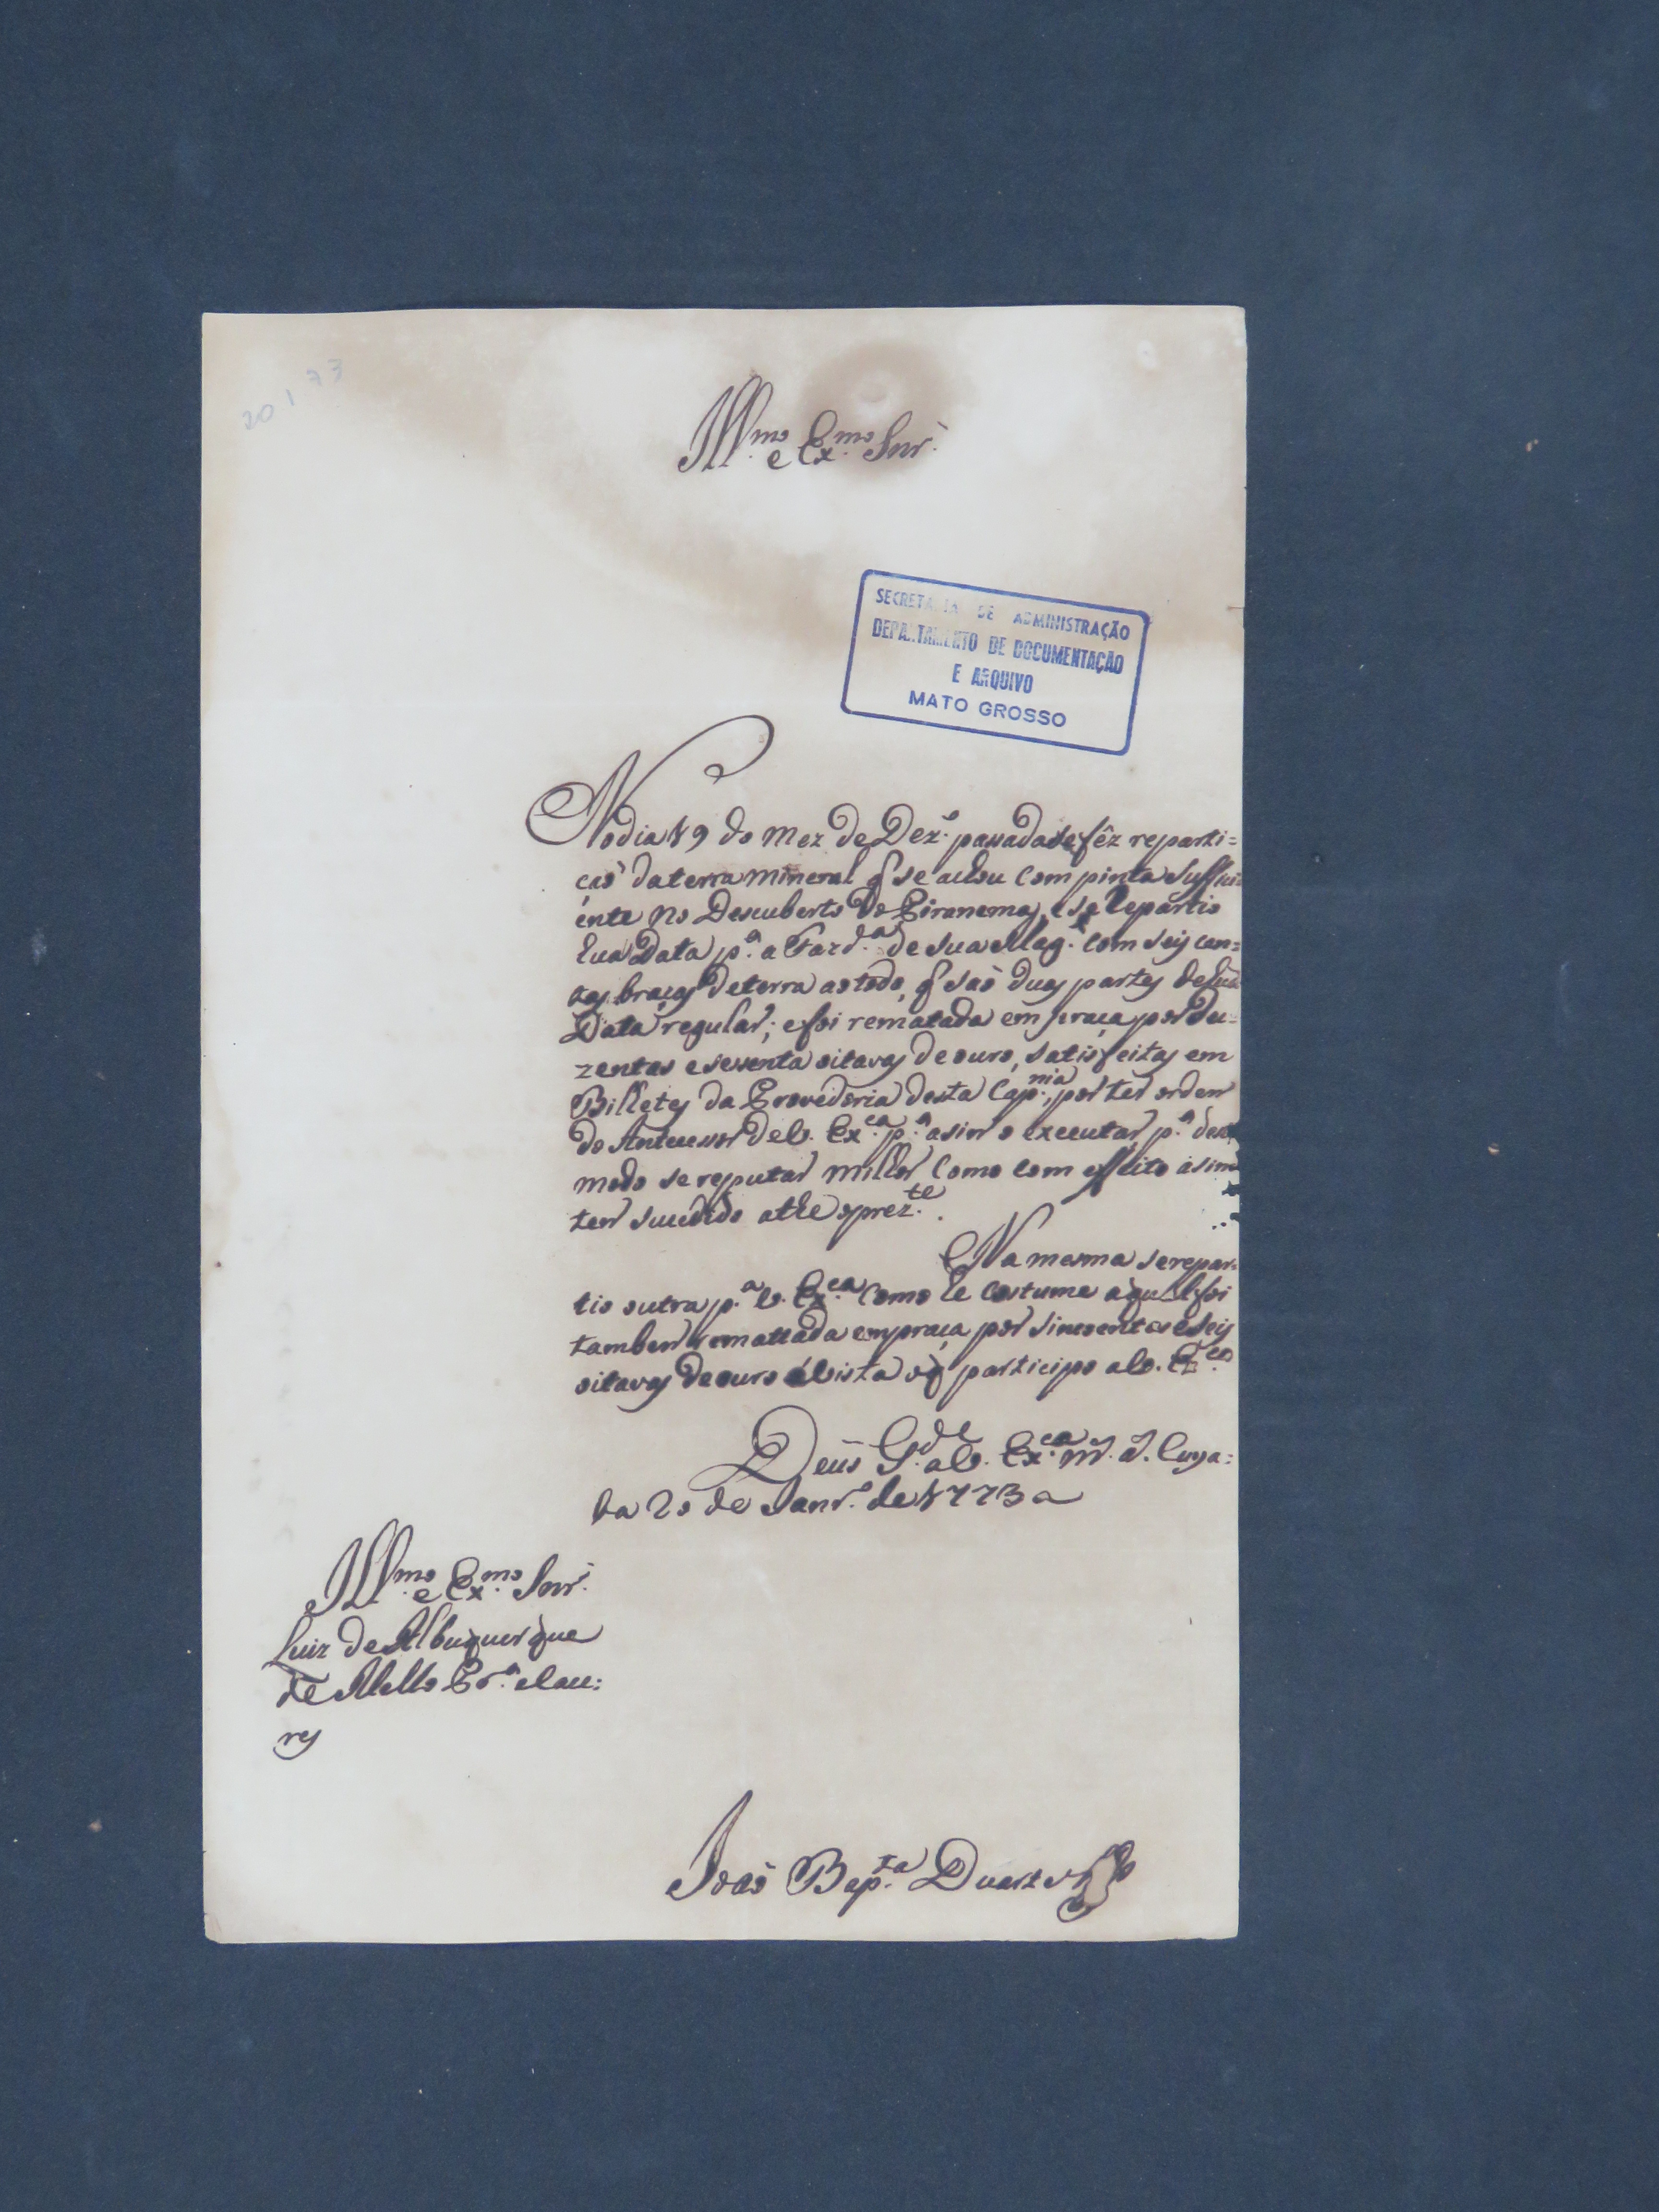 20 1 73
Ill.mo e Ex.mo Snr.
SECRETARIA DE ADMINISTRAÇÃO
DEPARTAMENTO DE DOCUMENTAÇÃO
E ARQUIVO
MATO GROSSO
No dia 19 do mez de Dez.o passado se fêz reparti=
caó da terra mineral q̃ se achou com pinta suffici
ente no Descuberto do Piranemas, e se Repartio
hua Data p.a a Fazd.a de Sua Mag. com seis cen=
tas braças de terra ao todo, q̃ saó duas partes de hũa
Data regular; e foi rematada em praca por du=
zentas e sesenta oitavas de ouro, satisfeitas em
Billetes da Provedoria desta Cap.nia, por ter ordem
do Antecessor de V. Ex.ca p.a asim o executar p.a deste
modo se reputar milhor como com effeito asim
tem sucedido athe o prez.te.
Na mesma se repar=
tio outra p.a V. Ex.ca como he costume a qual foi
tambem remattada em praca por sincoentas e seis
oitavas de ouro á vista o q̃ participo a V. Ex.ca
Deus G.de a V. Ex.ca m. a. Cuya=
ba 20 de Janr.o de 1773 a
Ill.mo e Ex.mo Snr.
Luiz de Albuquerque
de Mello Pr.a e Cace=
res
Joaó Bap.ta Duarte